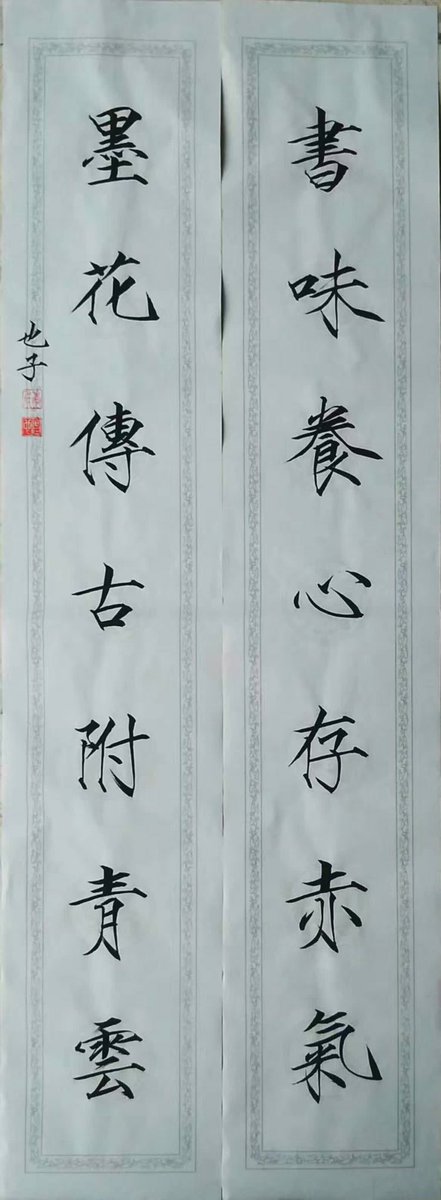 書味養心存赤氣
墨花傳古附青雲
也子